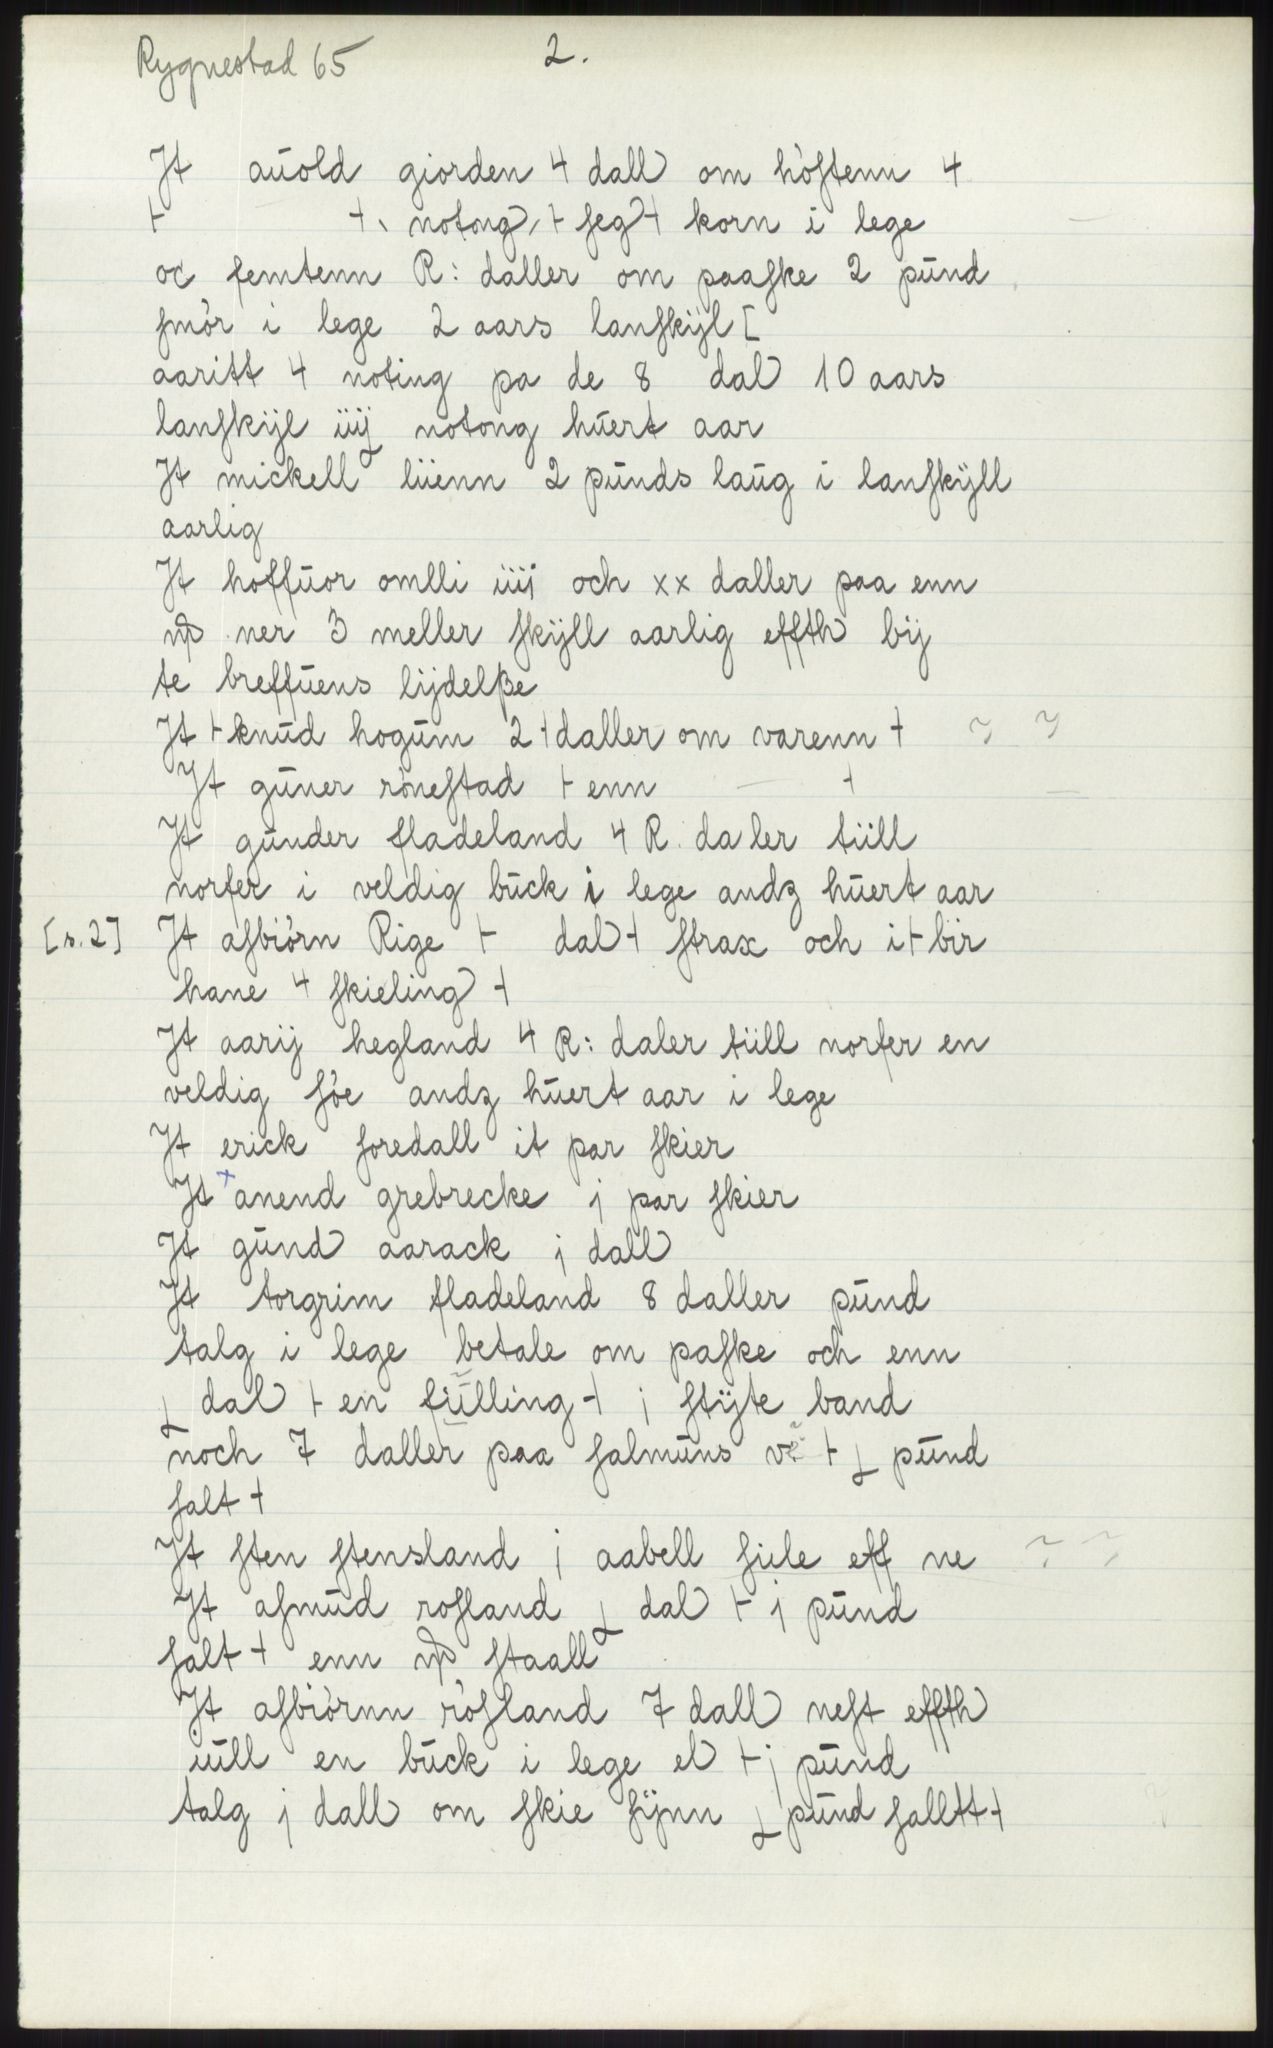 Rygnestad 65 2.
Jt auold giorden 4 dall om höſtenn 4
⊢ ⊣ notong ⊢ ſeg ⊣ korn i lege
oc femtenn R: daller om paaſke 2 pund
ſmör i lege 2 aars lanſkÿl [
aaritt 4 noting pa de 8 dal 10 aars
lanſkÿl notong huert aar
Jt mickell liienn 2 punds laug i lanſkÿll
aarlig
Jt hoffuor omlli iiij och xx daller paa enn
ner 3 meller ſkÿll aarlig effth bij
te breffuens lijdelße
Jt ⊢ knud hogum 2 ⊣ daller om varenn ⊣
Jt guner röneſtad ⊢ enn ⊣
Jt gunder fladeland 4 R. daler tiill
norfer i veldig buck i lege andz huert aar
[s. 2] Jt aſbiörn Rige ⊢ dal ⊣ ſtrax och it ⊢ bir
hane 4 ſkieling ⊣
Jt aarij hegland 4 R: daler tiill norfer en
veldig ſöe andz huert aar i lege
Jt erick ſoredall it par ſkier
Jt anend grebrecke j par ſkier
Jt gund aarack j dall
Jt torgrim fladeland 8 daller pund
talg i lege betale om paſke och enn
dal ⊢ en fiulling ⊣ j ſtÿte band
noch 7 daller paa ſalmuns ⊢ pund
ſalt ⊣
Jt ſten ſtensland j aabell ſiele eff ne
Jt aſmud roſland dal ⊢ j pund
ſalt ⊣ enn ſtaall
Jt aſbiörnn röſland 7 dall neſt effth
iull en buck i lege el ⊢ j pund
talg j dall om ſkie ſÿnn pund ſalltt ⊣